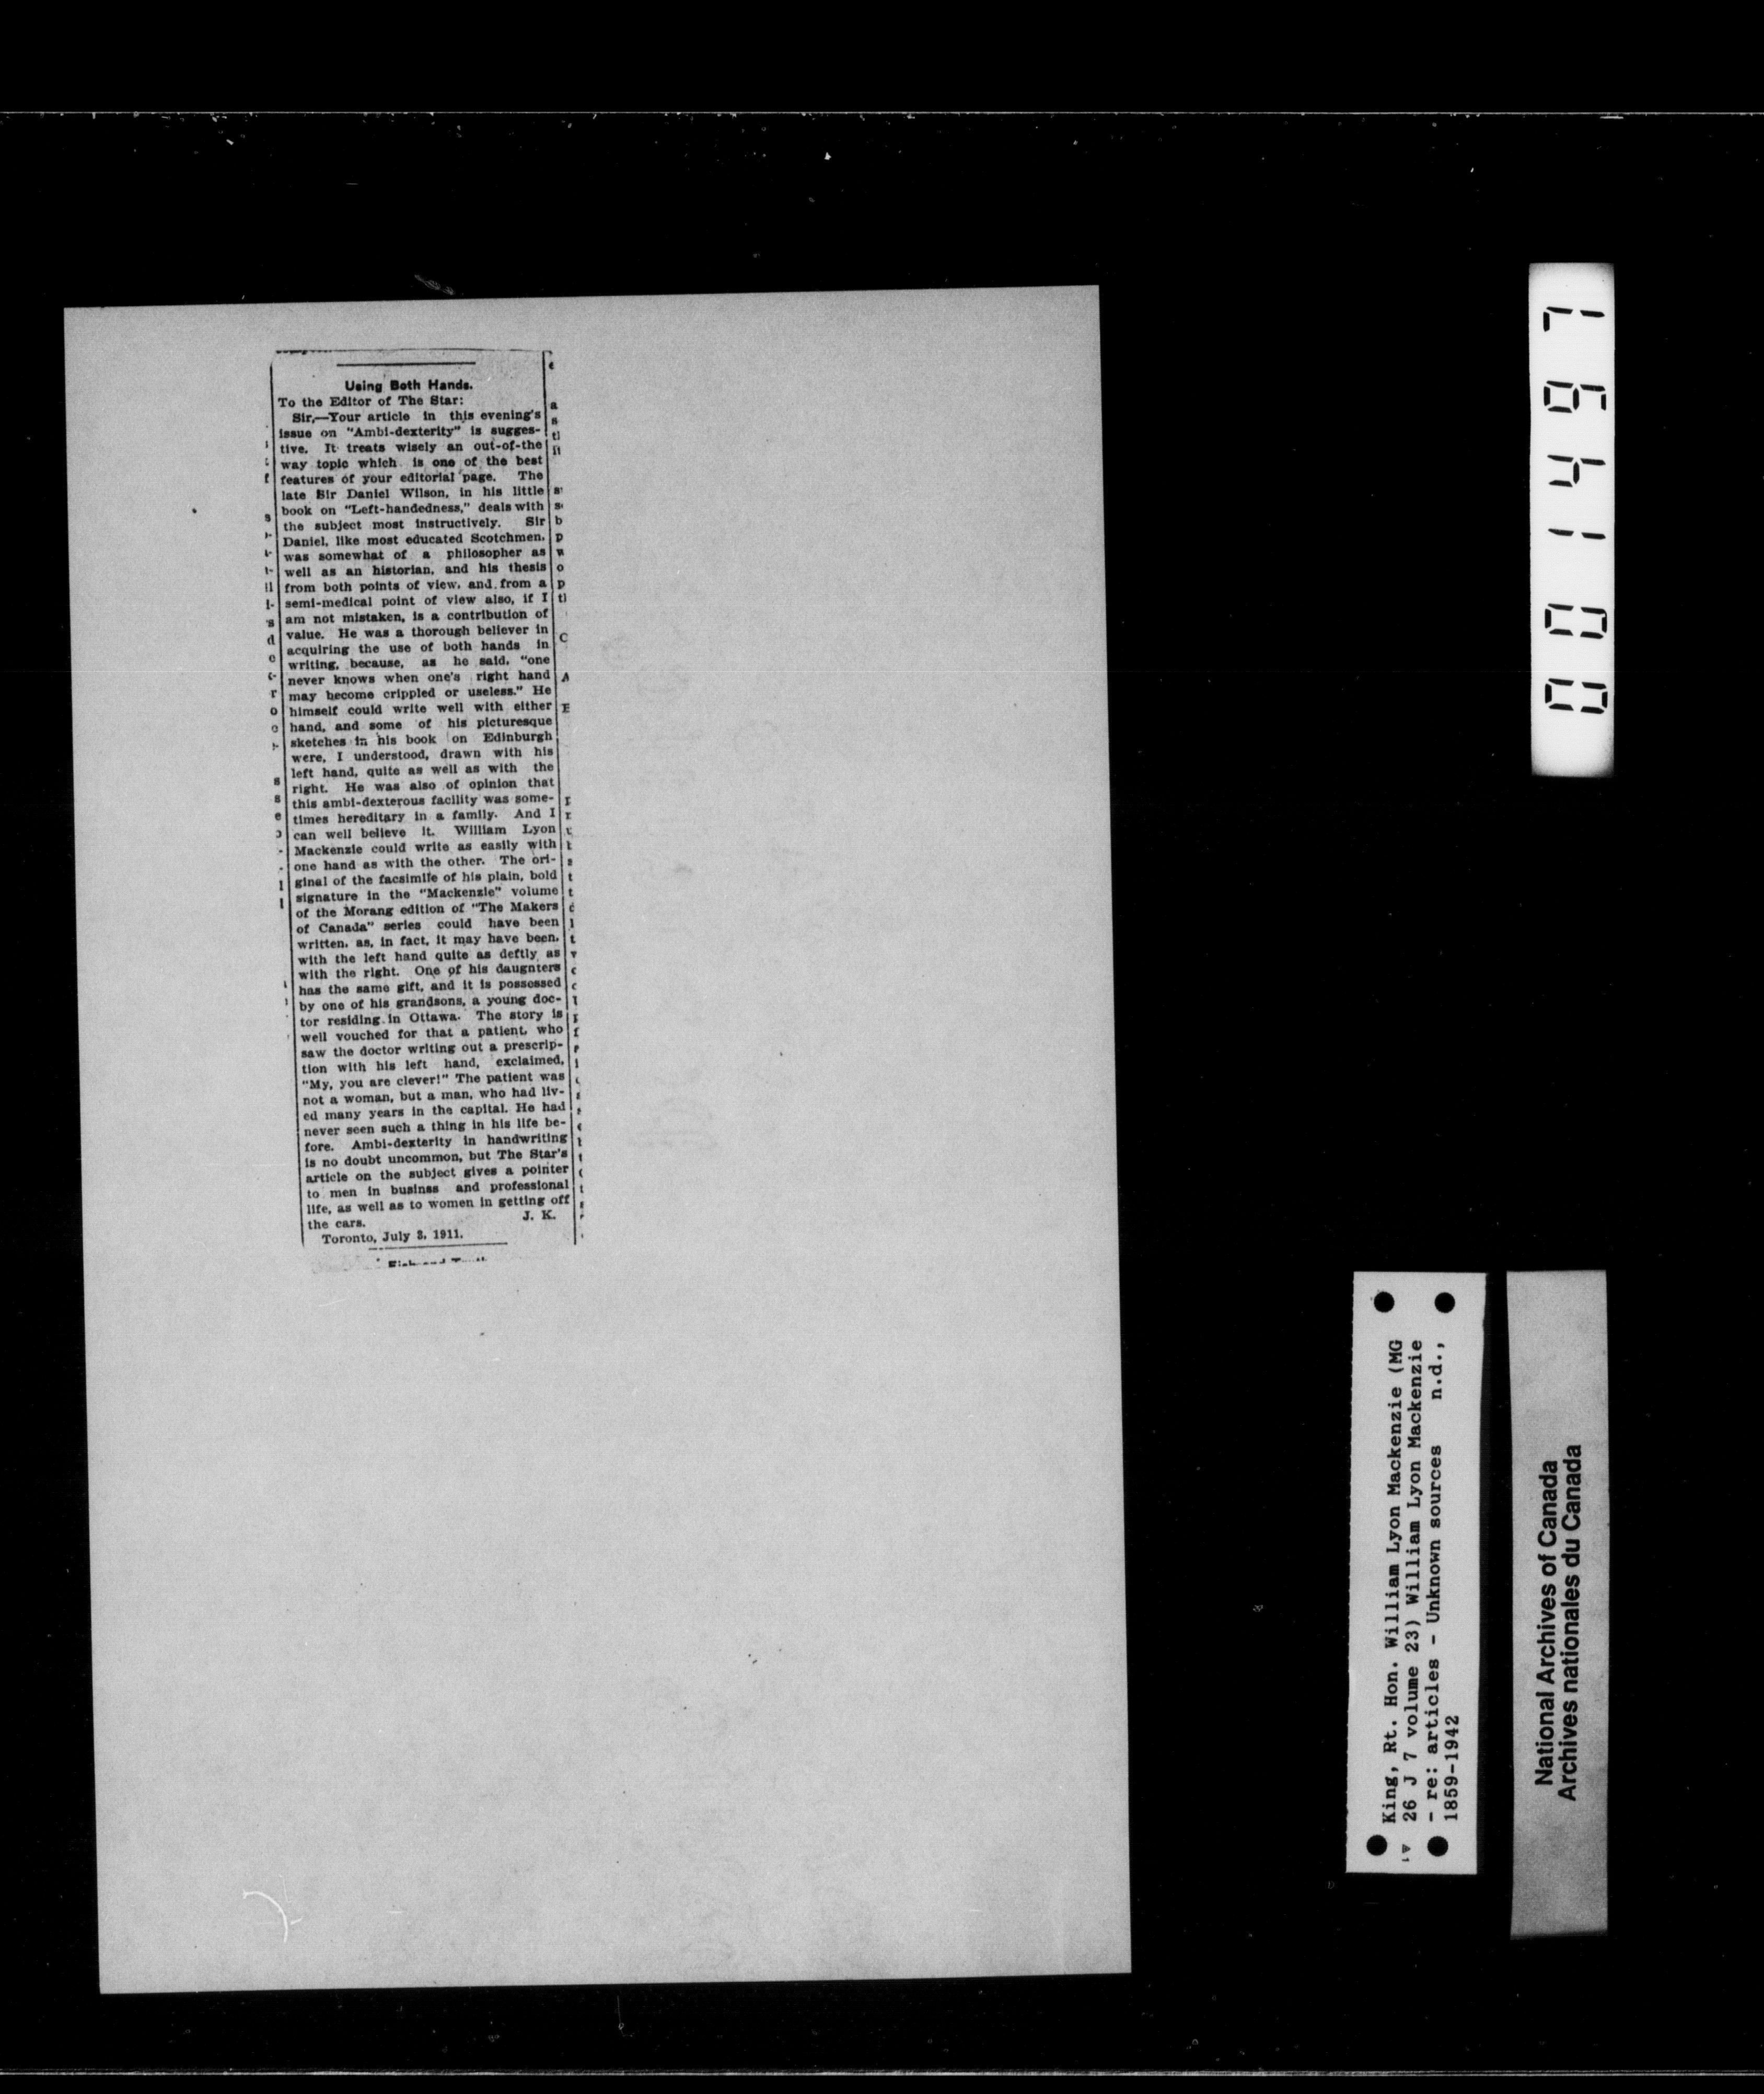 Using Both Hands.
To the Editor of The Star:
Sir,—Your article in this evening's
issue on "Ambi-dexterity" is sugges-
tive. It treats wisely an out-of-the
way topic which is one of the best
features of your editorial page. The
late Sir Daniel Wilson, in his little
book on "Left-handedness," deals with
the subject most instructively. Sir
Daniel, like most educated Scotchmen,
was somewhat of a philosopher as
well as an historian, and his thesis
from both points of view, and from a
semi-medical point of view also, if I
am not mistaken, is a contribution of
value. He was a thorough believer in
acquiring the use of both hands in
writing, because, as he said, "one
never knows when one's right hand
may become crippled or useless." He
himself could write well with either
hand, and some of his picturesque
sketches in his book on Edinburgh
were, I understood, drawn with his
left hand, quite as well as with the
right. He was also of opinion that
this ambi-dexterous facility was some-
times hereditary in a family. And I
can well believe it. William Lyon
Mackenzie could write as easily with
one hand as with the other. The ori-
ginal of the facsimile of his plain, bold
signature in the "Mackenzie" volume
of the Morang edition of "The Makers
of Canada" series could have been
written, as, in fact, it may have been,
with the left hand quite as deftly as
with the right. One of his daugnters
has the same gift, and it is possessed
by one of his grandsons, a young doc-
tor residing in Ottawa. The story is
well vouched for that a patient, who
saw the doctor writing out a prescrip-
tion with his left hand, exclaimed,
"My, you are clever!" The patient was
not a woman, but a man, who had liv-
ed many years in the capital. He had
never seen such a thing in his life be-
fore. Ambi-dexterity in handwriting
is no doubt uncommon, but The Star's
article on the subject gives a pointer
to men in businss and professional
life, as well as to women in getting off
the cars. J. K.
Toronto, July 3, 1911.
001497
King, Rt. Hon. William Lyon Mackenzie (MG
26 J 7 volume 23) William Lyon Mackenzie
- re: articles - Unknown sources n.d.,
1859-1942
National Archives of Canada
Archives nationales du Canada